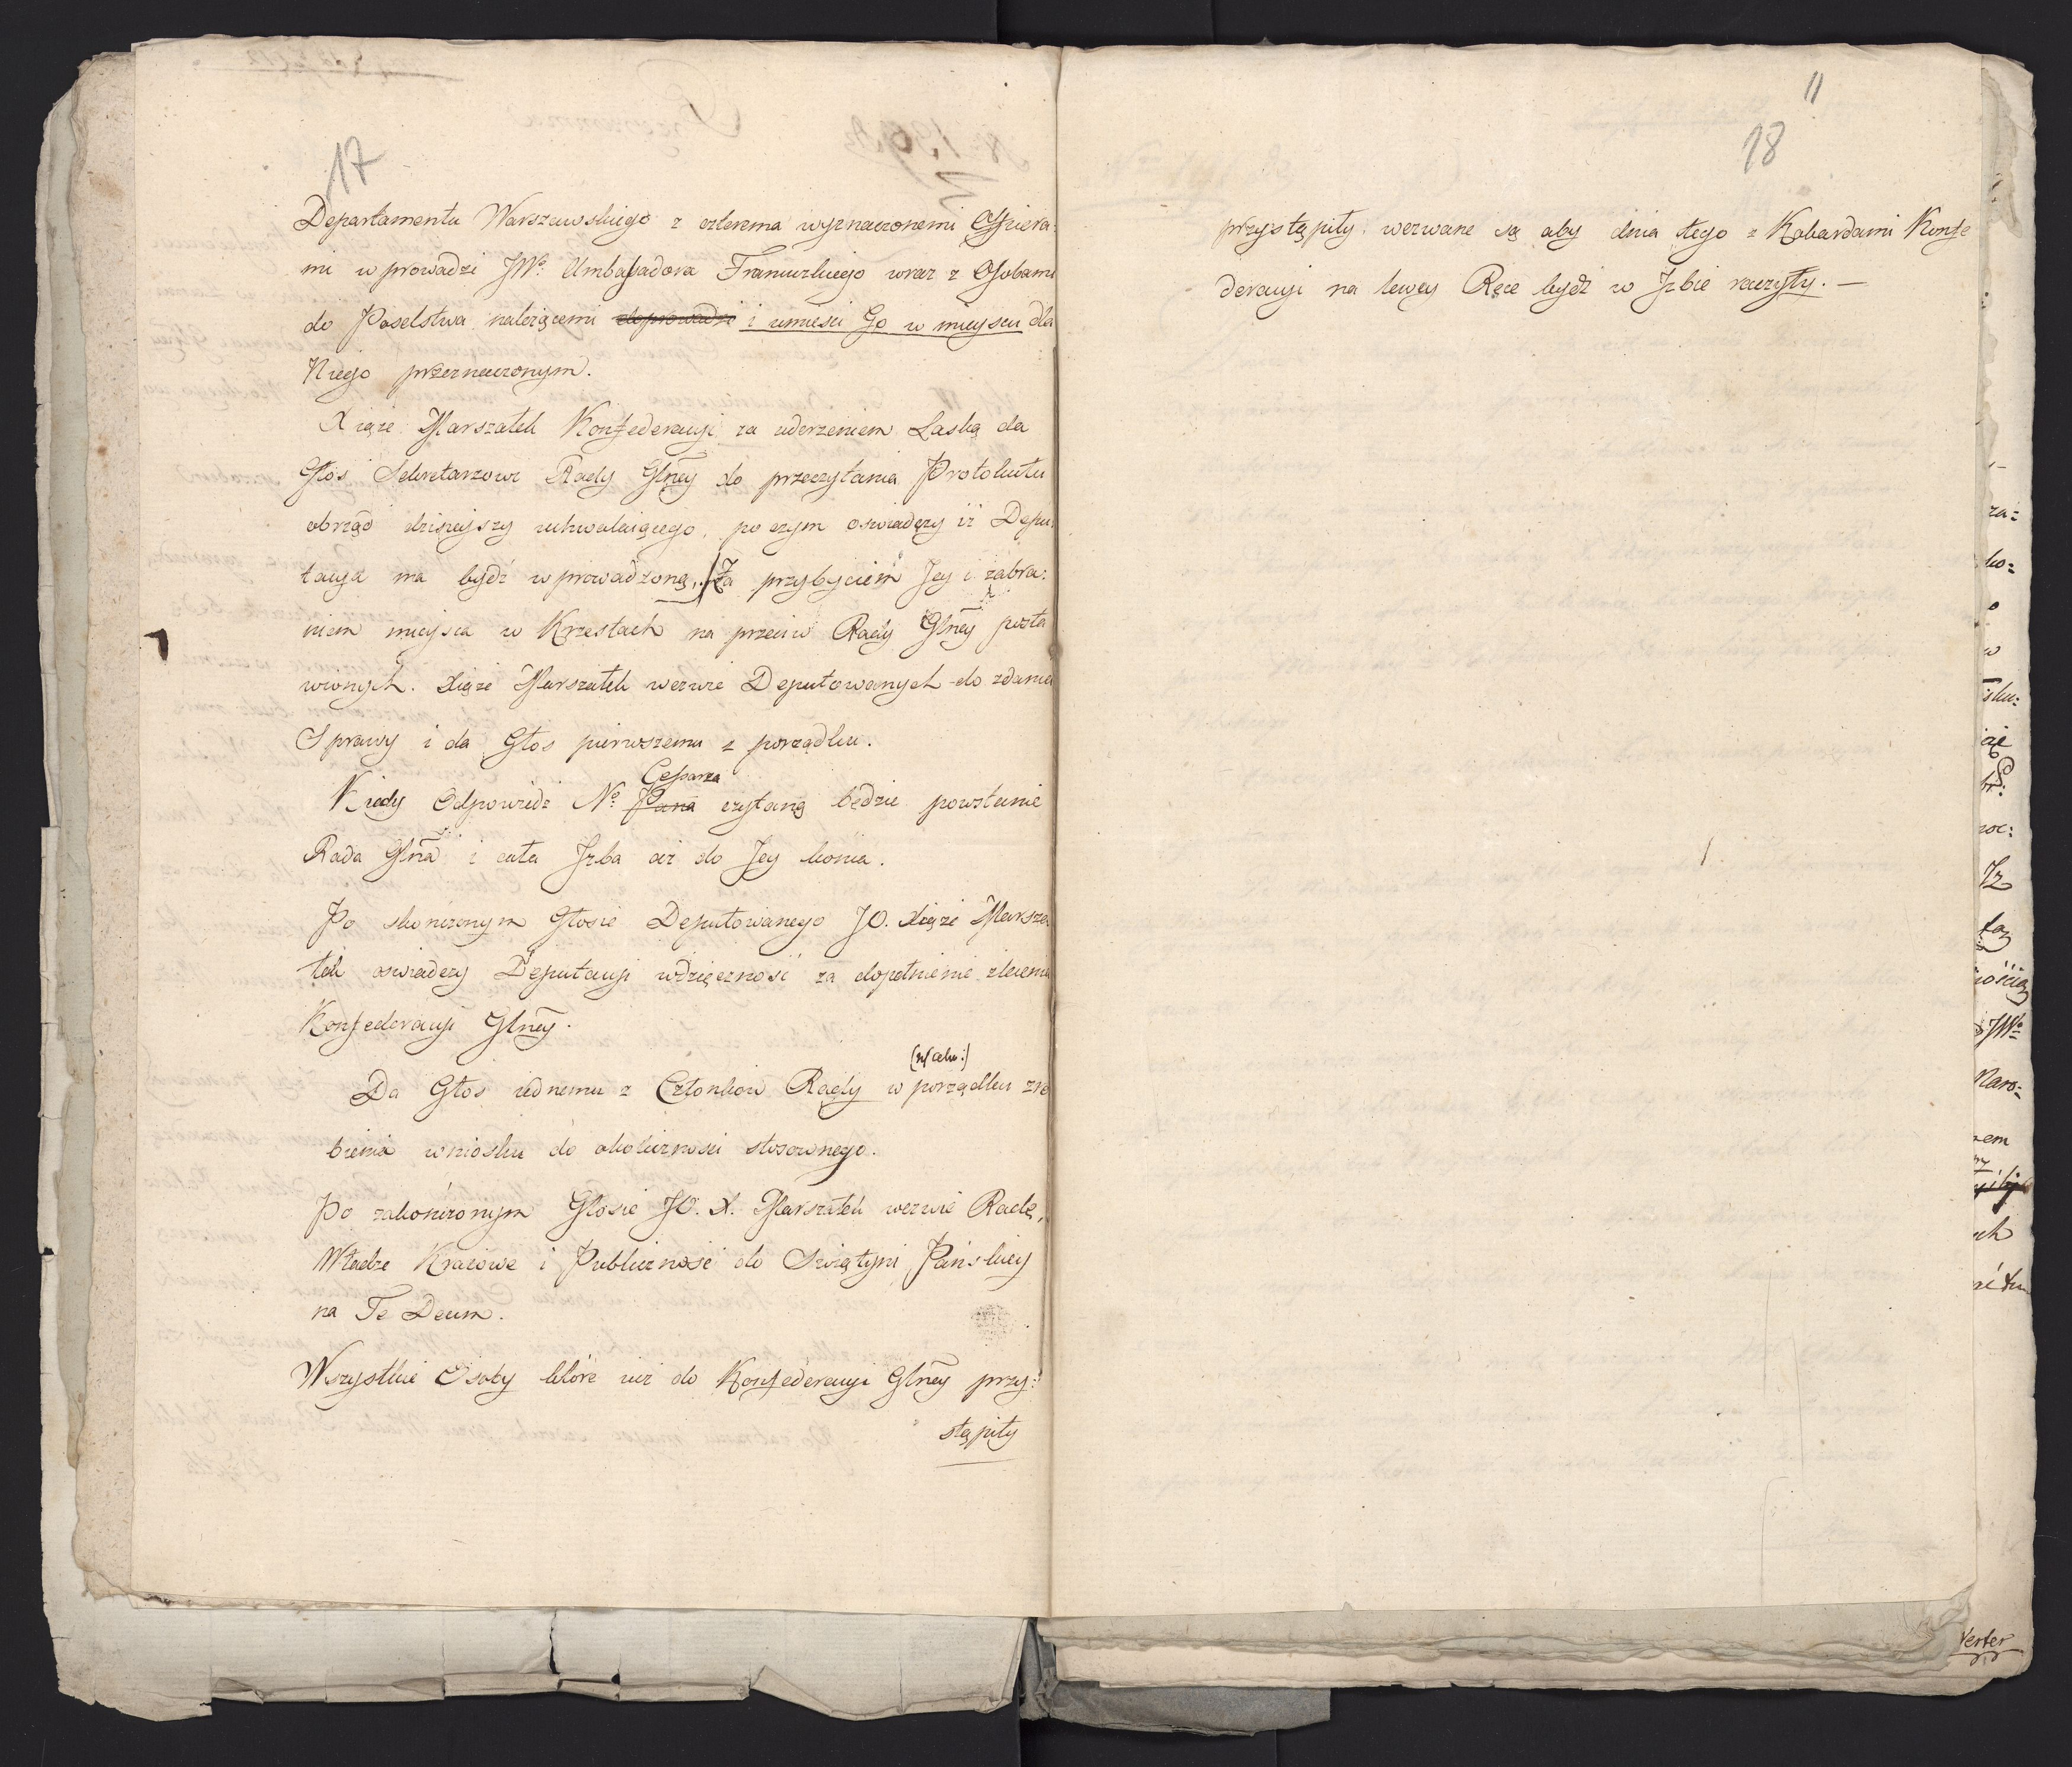 17
Departamentu Warszawskiego z czterema wyznaczonemi Officiera:
mi wprowadzi JWo. Ambassadora Francuzkiego wraz z Osobami
do Poselstwa należącemi doprowadzi i umiesci Go w mieyscu dla
Niego przeznaczonym.
Xiąże Marszałek Konfederacyi za uderzeniem Laską da
Głos Sekretarzowi Rady Glney do przeczytania Protokułu
obrząd dzisieyszy uchwalaiącego, po czym oswiadczy iż Depu:
tacya ma bydź wprowadzoną. Za przybyciem Jey i zabra:
niem mieysca w Krzesłach na przeciw Rady Glney posta
wionych. Xiąże Marszałek wezwie Deputowanych do zdania
Sprawy i da Głos pierwszemu z porządku.
Cesarza
Kiedy Odpowiedź No. Pana czytaną będzie powstanie
Rada Glna i cała Izba aż do Jey końca.
Po skończonym Głosie Deputowanego JO. Xiąże Marsza
łek oswiadczy Deputacyi wdzięczność za dopełnienie zlecenia
Konfederacyi Glney.
(w celu:)
Da Głos iednemu z Członków Rady w porządku zro
bienia wniosku do okoliczności stosownego.
Po zakończonym Głosie JO. X. Marszałek wezwie Radę,
Władze Kraiowe i Publiczność do Swiątyni Pańskiey
na Te Deum.
Wszystkie Osoby które iuż do Konfederacyi Glney przy:
stąpiły
11
18
przystąpiły wezwane są aby dnia tego z Kokardami Konfe
deracyi na lewey Ręce bydź w Izbie raczyły. —
za:
ko:
w
sku:
noc:
Iz
JWo
Naro:
nem
ch
Verter